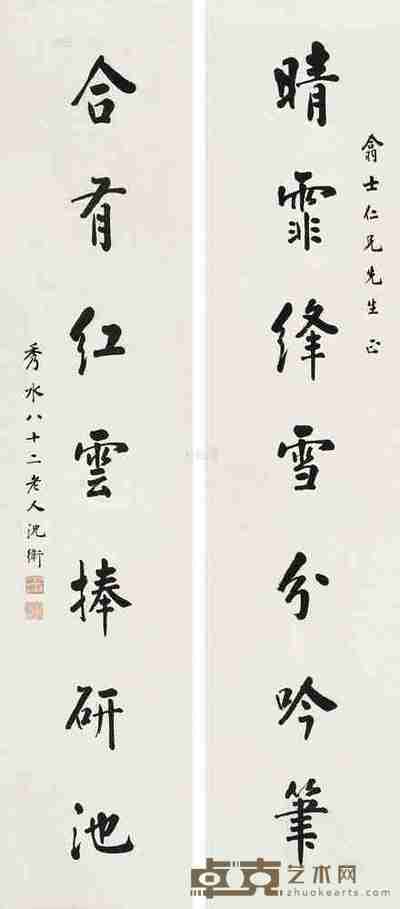 翕士仁兄先生正
晴霏絳雪分吟筆
合有紅雲捧研池
秀水八十二老人沈衛
卓克艺术网
zhuokearts.com